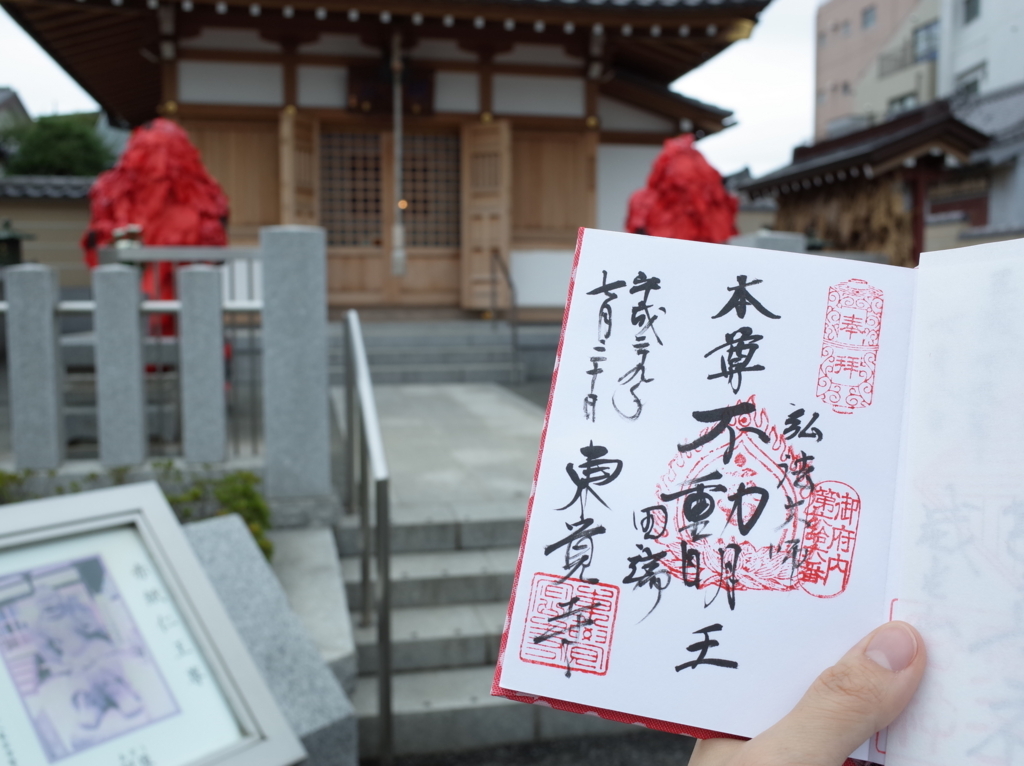 奉拝
弘法大師
御府内
第六十六番
本尊不動明王
田端
東覚寺
平成二九年
七月二十日
赤紙仁王尊